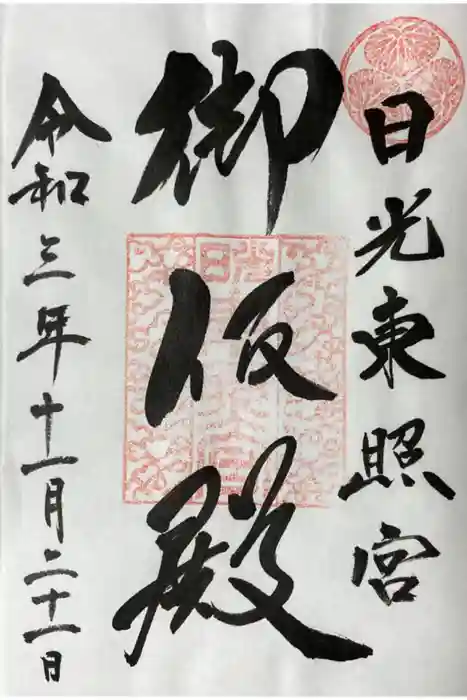 日光東照宮
御仮殿
令和三年十一月二十一日